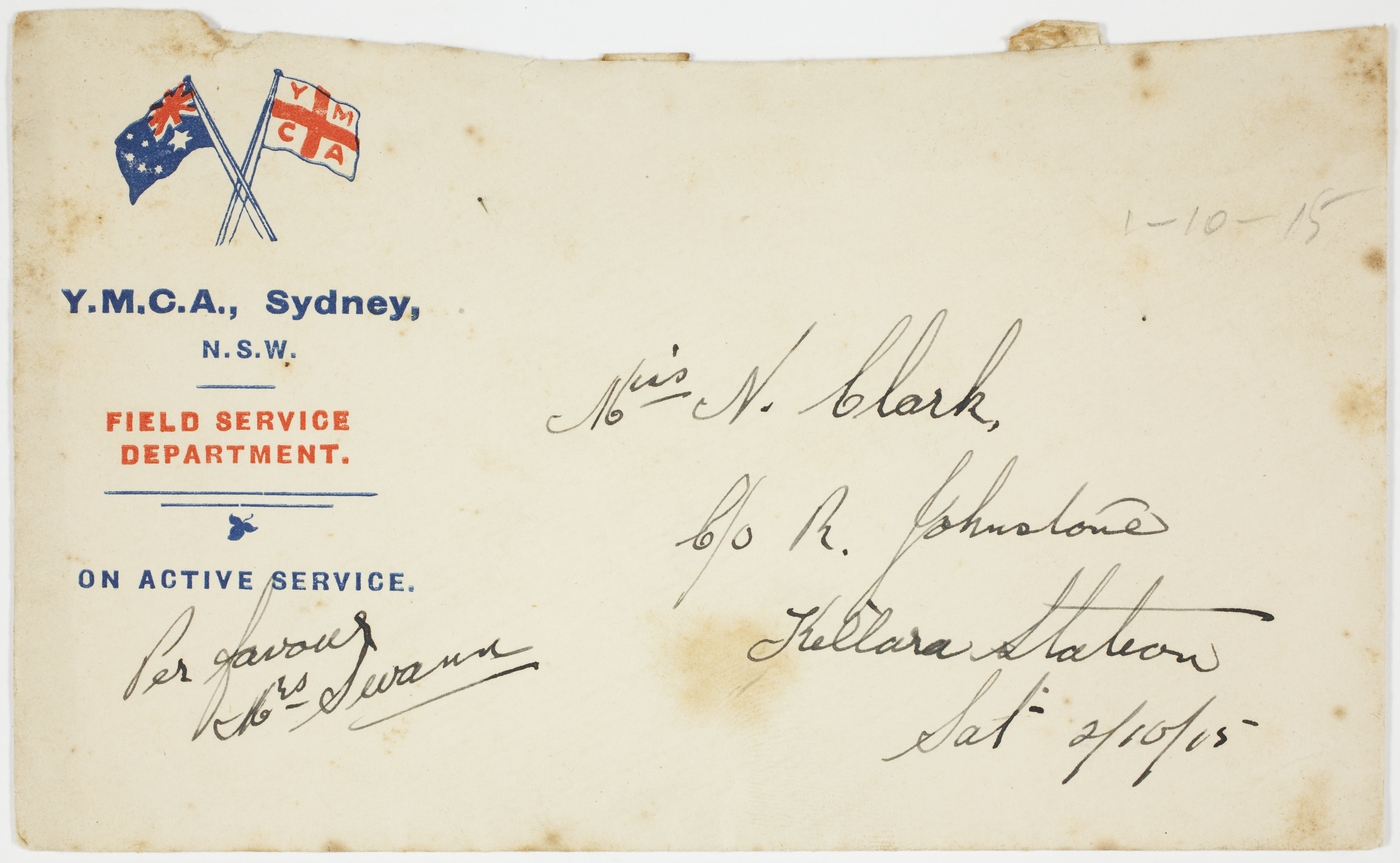 Y M
C A
Y.M.C.A., Sydney,
N.S.W.
FIELD SERVICE
DEPARTMENT.
ON ACTIVE SERVICE.
Per favour
Mrs Swann
1-10-15
Miss N. Clark,
C/o R. Johnstone
Killara Station
Sat 2/10/15